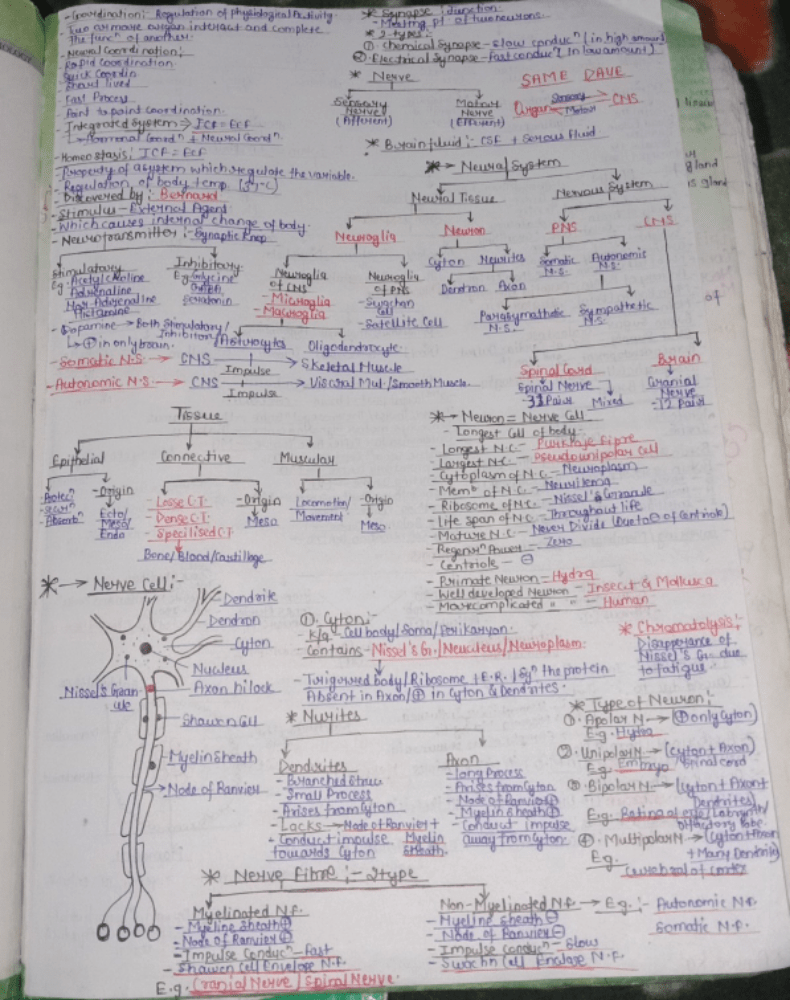 - Coordination; Regulation of physiological Activity.
- Two or more organ interact and complete
The funcn of another.
- Neural Coordination;
Rapid Coordination
Quick Coordin
Short lived
Fast Process
Point to point coordination.
- Integrated System ⇒ ICF = ECF
↳ Hormonal Coordn + Neural Coordn
- Homeostasis; ICF = ECF
- Property of a system which regulate the variable.
- Regulation of body temp.
- Discovered by: Bernard
- Stimulus - External Agent
- Which causes internal change of body.
- Neurotransmitter :- Synaptic Knop
Stimulatory
Eg: Acetylcholine
Adrenaline
Nor Adrenaline
Histamine
Inhibitory
E.g: Glycine
GABA
Serotonin
- Dopamine → Both Stimulatory/
Inhibitory
↳ ⊕ in only brain.
- Somatic N.S. → CNS → Skeletal Muscle
Impulse
- Autonomic N.S → CNS → Visceral Mul./Smooth Muscle.
Impulse
* Synapse; Junction:
- Meeting pt of two neurons.
* 2-types:
① Chemical Synapse - Slow conducn (in high amount)
② Electrical Synapse - Fast conducn (in low amount)
* Nerve
Sensory
Nerve
(Afferent)
Motor
Nerve
(Efferent)
SAME DAVE
Organ Sensory CNS
Motor
* Brain fluid :- CSF + Serous Fluid
* → Neural System
Neural Tissue
Nervous System
Neuroglia
Neuron
PNS
CNS
Neuroglia
of CNS
- Microglia
- Macroglia
Neuroglia
of PNS
- Swachan
Cell
- Satellite Cell
Astrocytes
Oligodendrocyte
Cyton
Neurites
Dendron
Axon
Somatic
N.S.
Autonomic
N.S.
Parasymathetic
N.S.
Sympathetic
N.S.
Spinal Cord
Spinal Nerve
- 31 Pair
Mixed
Brain
Cranial
Nerve
- 12 Pair
Tissue
Epithelial
Connective
Muscular
- Protecn
- Secrn
- Absorbn
- Origin
Ecto/
Meso/
Endo
- Losse C.T.
- Dense C.T.
- Specilised C.T.
Bone/Blood/Cartillage
- Origin
Meso
Locomotion/
Movement
- Origin
Meso
* → Neuron = Nerve Cell
- Longest Cell of body.
- Longest N.C - Purkinje Fibre
- Largest N.C. - Pseudounipolar Cell
- Cytoplasm of N.C. - Neuroplasm
- Memb of N.C. - Neurilema
- Ribosome of N.C. - Nissel's Granule
- Life span of N.C - Throughout life
- Mature N.C - Never Divide (Due to ⊖ of Centriole)
- Regenn Power - Zero
- Centriole - ⊖
- Primate Neuron = Hydra
- Well developed Neuron - Insect & Mollusca
- More complicated " " - Human
* → Nerve Cell :-
Dendrite
Dendron
Cyton
Nucleus
Axon hilock
Nissel's Gran
ule
Shawen Cell
Myelin Sheath
Node of Ranvier
①. Cyton :-
- K/a Cell body/Soma/Perikaryon.
- Contains - Nissel's G./Neucleus/Neuroplasm.
- Trigurred body/Ribosome + E.R. / Syn the protein
Absent in Axon/⊕ in Cyton & Dendrites.
* Chromatolysis;
Disapperance of
Nissel's G. due
to fatigue.
* Nurites
Dendrites
- Branched Struc
- Small Process
- Arises from Cyton
- Lacks → Node of Ranvier +
Myelin
Sheath.
- Conduct impulse
towards Cyton
Axon
- long Process
- Arises from Cyton
- Node of Ranvier ⊕
- Myelin Sheath ⊕
- Conduct impulse
away from Cyton.
* Type of Neuron;
①. Apolar N → (⊕ only Cyton)
E.g. Hydra
②. Unipolar N → (Cyton + Axon)
E.g. Embryo/Spinal cord
③. Bipolar N. → (Cyton + Axon +
Dendrites)
E.g. Retina of eye/Labrynth/
Olfactory lobe.
④. Multipolar N → (Cyton + Axon
+ Many Dendrite)
E.g. Cerebral of cortex
* Nerve Fibre :- 2 type
Myelinated N.F.
- Myeline Sheath ⊕
- Node of Ranvier ⊕
- Impulse Conducn - Fast
- Shawen Cell Envelope N.F.
E.g. Cranial Nerve / Spiral Nerve.
Non-Myelinated N.F. → E.g :- Autonomic N.F.
Somatic N.F.
- Myeline Sheath ⊖
- Node of Ranvier ⊖
- Impulse Conducn - Slow
- Swachn Cell Enclose N.F.
gland
is gland
of